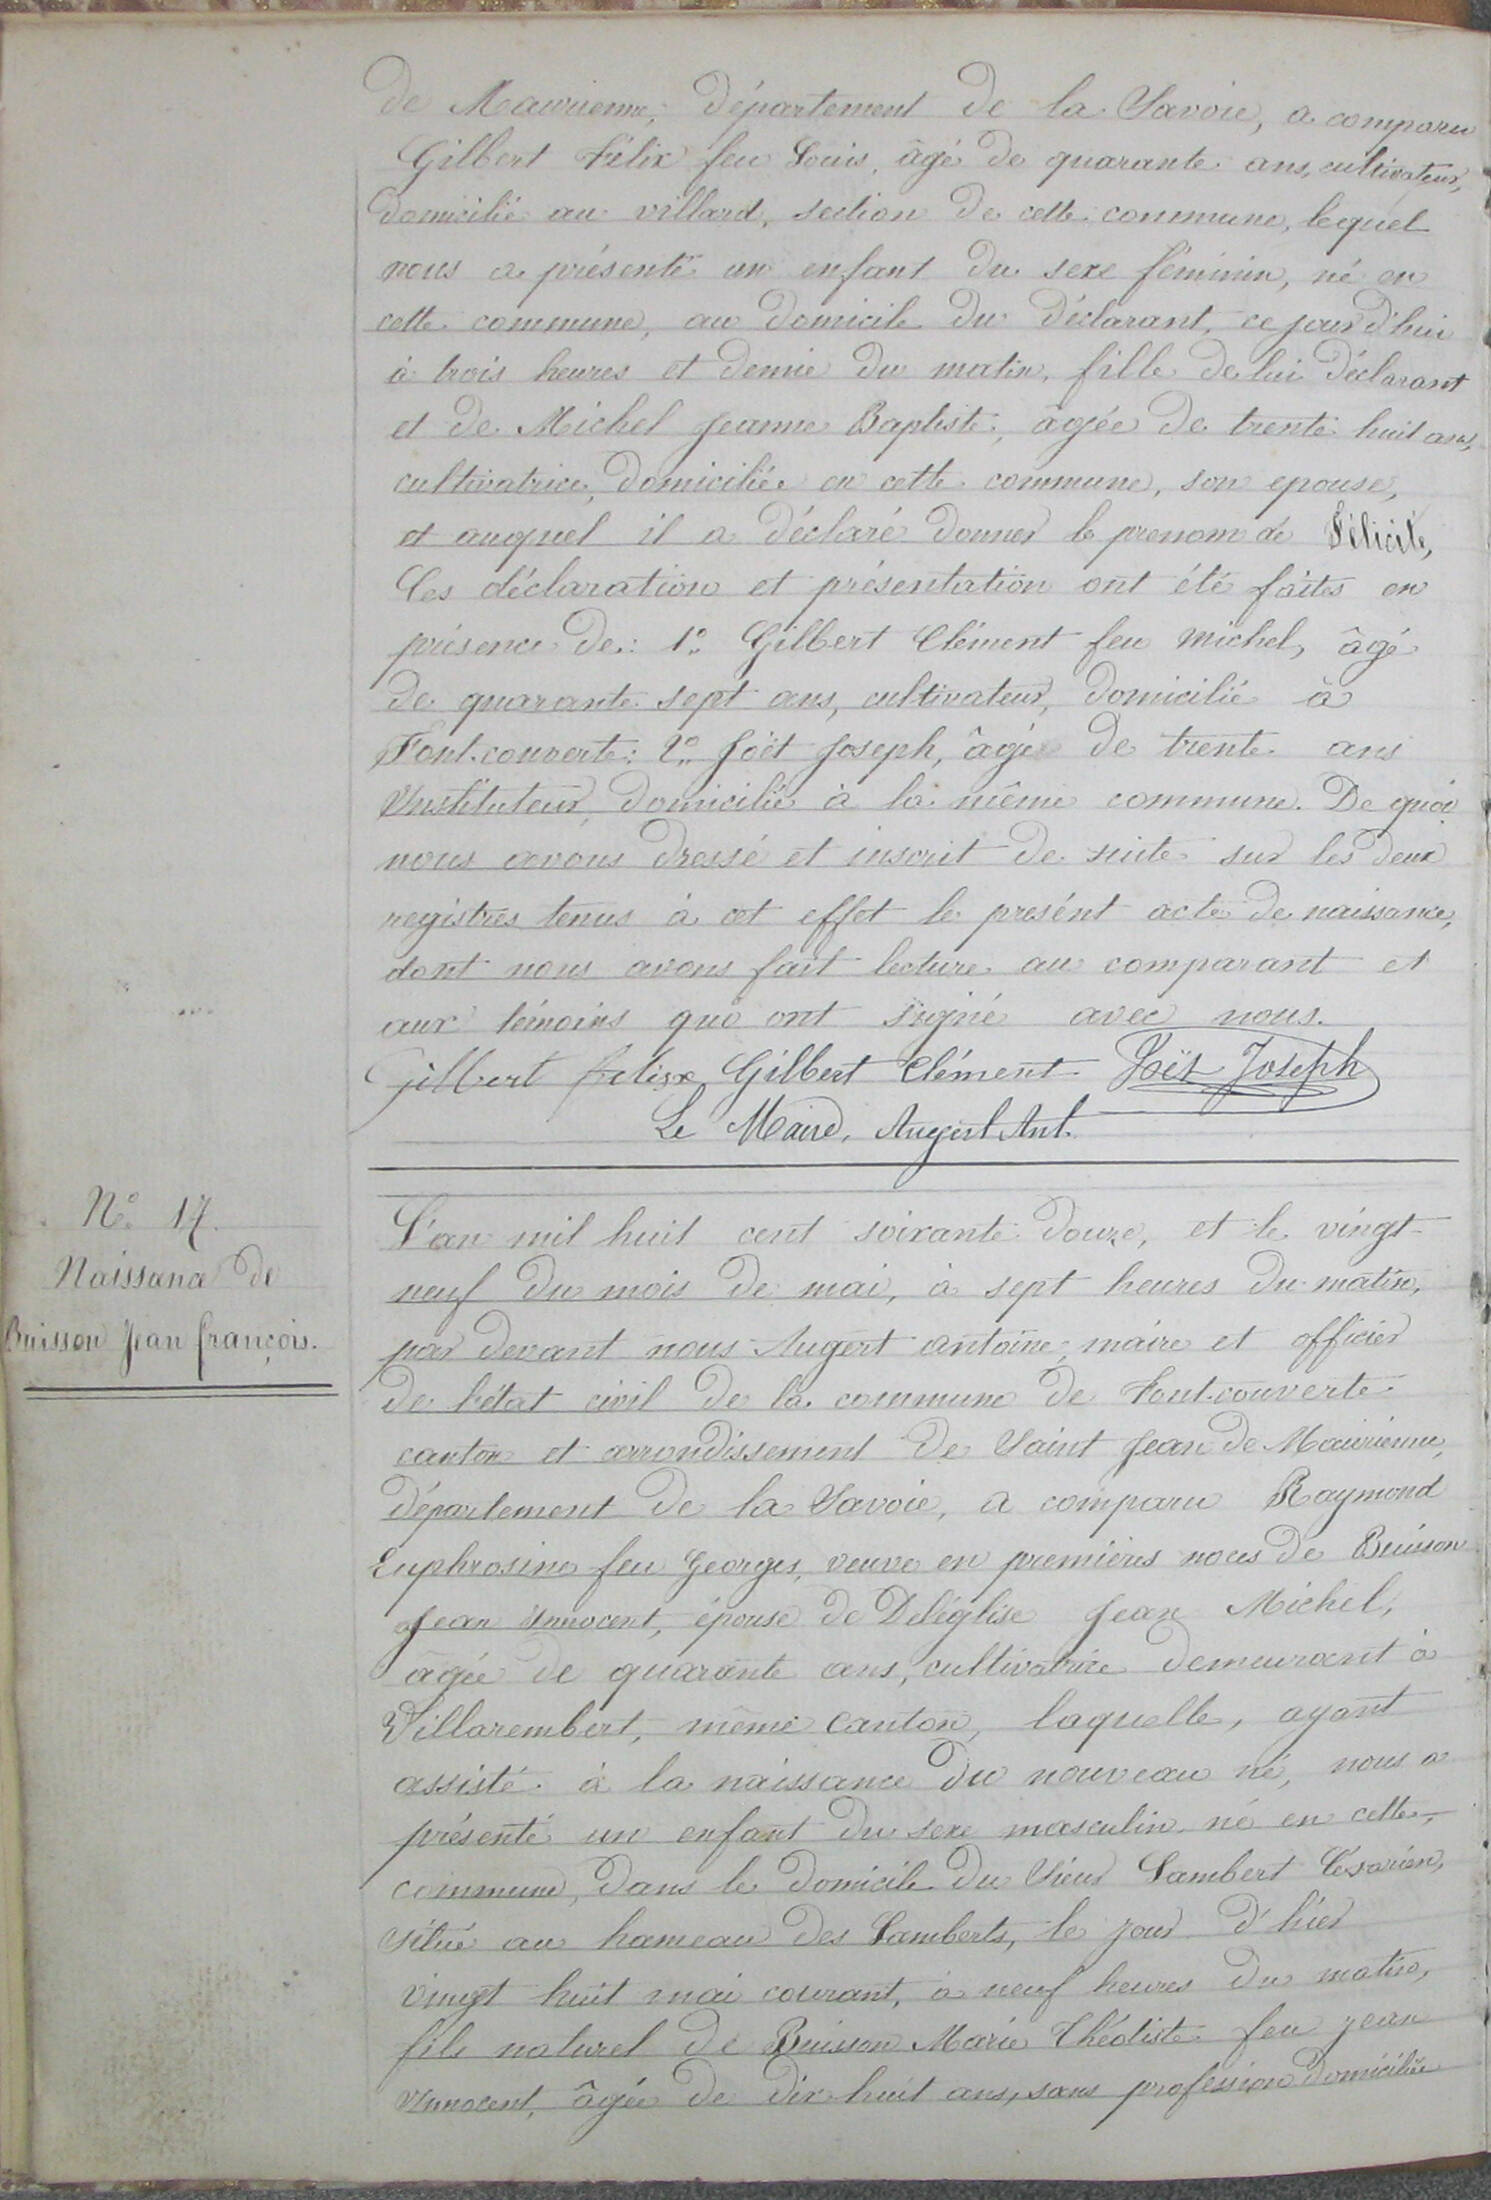 de Maurienne, département de la Savoie, a comparu
Gilbert Félix feu Louis, âgé de quarante ans, cultivateur,
domicilié au villard, section de cette commune, lequel
nous a présenté un enfant du sexe féminin, né en
cette commune, au domicile du déclarant, ce jour d'hui
à trois heures et demie du matin, fille de lui déclarant
et de Michel Jeanne Baptiste, âgée de trente huit ans,
cultivatrice, domiciliée en cette commune, son epouse,
et auquel il a déclaré donner le prenom de Félicité,
Ces déclaration et présentation ont été faites en
présence de: 1º Gilbert Clément feu Michel, âgé
de quarante sept ans, cultivateur, domicilié à
Font-couverte: 2º Joët Joseph, âgé de trente ans
Instituteur, domicilié à la même commune. De quoi
nous avons dressé et inscrit de suite sur les deux
registres tenus à cet effet le présent acte de naissance,
dont nous avons fait lecture au comparant et
aux témoins qui ont signé avec nous.
Gilbert félix Gilbert Clément Joët Joseph
Le Maire, Augert Ant.
Nº 17.
Naissance de
Buisson Jean françois.
L'an mil huit cent soixante douze, et le vingt
neuf du mois de mai, à sept heures du matin,
par devant nous Augert antoine, maire et officier
de l'état civil de la commune de Font-couverte
canton et arrondissement de Saint Jean de Maurienne,
département de la Savoie, a comparu Raymond
Euphrosine feu Georges, veuve en premières noces de Buisson
Jean Innocent, épouse de Deléglise Jean Michel,
âgée de quarante ans, cultivatrice demeurant à
Villarembert, même canton, laquelle, ayant
assisté à la naissance du nouveau né, nous a
présenté un enfant du sexe masculin né en cette
commune, dans le domicile du Sieur Lambert Césarien,
situé au hameau des Lamberts, le jour d'hier
vingt huit mai courant, à neuf heures du matin,
fils naturel de Buisson Marie Théotiste feu jean
Innocent, âgée de dix huit ans, sans profession domiciliée